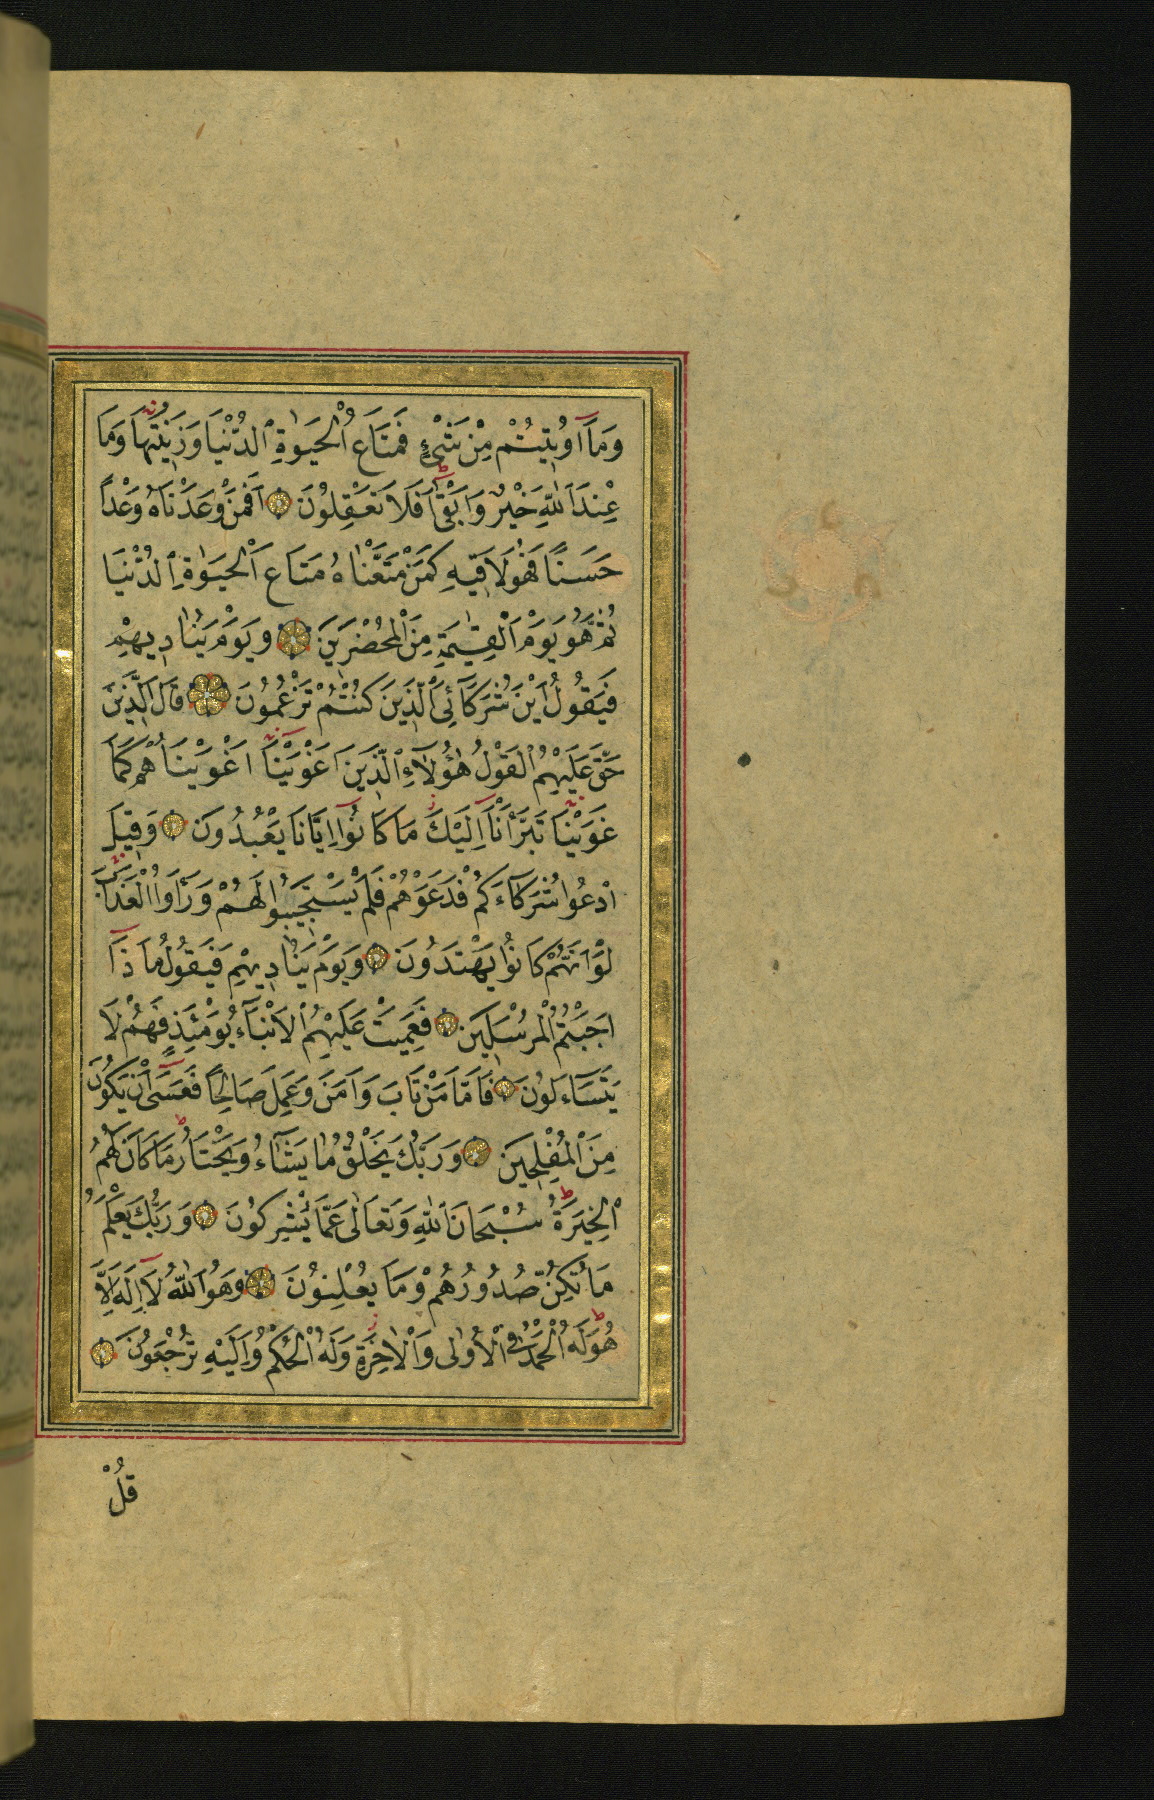 وَمَٓا اُو۫تٖيتُمْ مِنْ شَيْءٍ فَمَتَاعُ الْحَيٰوةِ الدُّنْيَا وَزٖينَتُهَا وَمَا
عِنْدَ اللّٰهِ خَيْرٌ وَاَبْقٰى اَفَلَا تَعْقِلُونَ اَفَمَنْ وَعَدْنَاهُ وَعْدًا
حَسَنًا فَهُوَ لَاقٖيهِ كَمَنْ مَتَّعْنَاهُ مَتَاعَ الْحَيٰوةِ الدُّنْيَا
ثُمَّ هُوَ يَوْمَ الْقِيٰمَةِ مِنَ الْمُحْضَرٖينَ وَيَوْمَ يُنَادٖيهِمْ
فَيَقُولُ اَيْنَ شُرَكَٓائِيَ الَّذٖينَ كُنْتُمْ تَزْعُمُونَ قَالَ الَّذٖينَ
حَقَّ عَلَيْهِمُ الْقَوْلُ رَبَّنَا هٰٓؤُلَٓاءِ الَّذٖينَ اَغْوَيْنَا اَغْوَيْنَاهُمْ كَمَا
غَوَيْنَا تَبَرَّأْنَٓا اِلَيْكَ مَا كَانُٓوا اِيَّانَا يَعْبُدُونَ وَقٖيلَ
ادْعُوا شُرَكَٓاءَكُمْ فَدَعَوْهُمْ فَلَمْ يَسْتَجٖيبُوا لَهُمْ وَرَاَوُا الْعَذَابَ
لَوْ اَنَّهُمْ كَانُوا يَهْتَدُونَ وَيَوْمَ يُنَادٖيهِمْ فَيَقُولُ مَاذَٓا
اَجَبْتُمُ الْمُرْسَلٖينَ فَعَمِيَتْ عَلَيْهِمُ الْاَنْبَٓاءُ يَوْمَئِذٍ فَهُمْ لَا
يَتَسَٓاءَلُونَ فَاَمَّا مَنْ تَابَ وَاٰمَنَ وَعَمِلَ صَالِحًا فَعَسٰٓى اَنْ يَكُونَ
مِنَ الْمُفْلِحٖينَ وَرَبُّكَ يَخْلُقُ مَا يَشَٓاءُ وَيَخْتَارُ مَا كَانَ لَهُمُ
الْخِيَرَةُ سُبْحَانَ اللّٰهِ وَتَعَالٰى عَمَّا يُشْرِكُونَ وَرَبُّكَ يَعْلَمُ
مَا تُكِنُّ صُدُورُهُمْ وَمَا يُعْلِنُونَ وَهُوَ اللّٰهُ لَٓا اِلٰهَ اِلَّا
هُوَ لَهُ الْحَمْدُ فِي الْاُولٰى وَالْاٰخِرَةِ وَلَهُ الْحُكْمُ وَاِلَيْهِ تُرْجَعُونَ
قُلْ